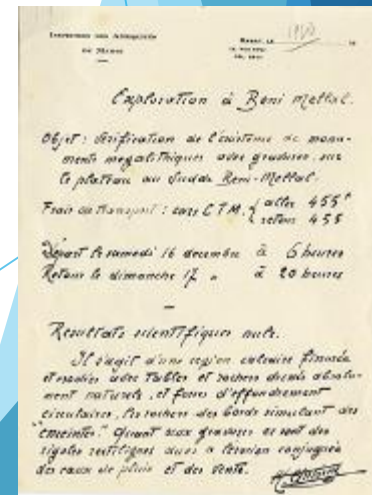 INSPECTION DES ANTIQUITÉS
DU MAROC
RABAT, LE
Exploration à Beni Mellal.
Objet : Vérification de l'existence de monu-
ments mégalithiques avec gravures sur
le plateau au Sud de Beni-Mellal.
Frais de transport : cars C.T.M. { aller 455
retour 455
Départ le samedi 16 decembre à 6 heures
Retour le dimanche 17 " à 20 heures
Résultats scientifiques nuls.
Il s'agit d'une region calcaire fissurée
et avec Tables et rochers absolu-
ment naturels, et fosses d'effondrement
circulaires, les rochers des bords simulant des
"enceintes." Quant aux gravures ce sont des
rigoles rectilignes dues à l'érosion conjuguée
des eaux de pluie et des vents.